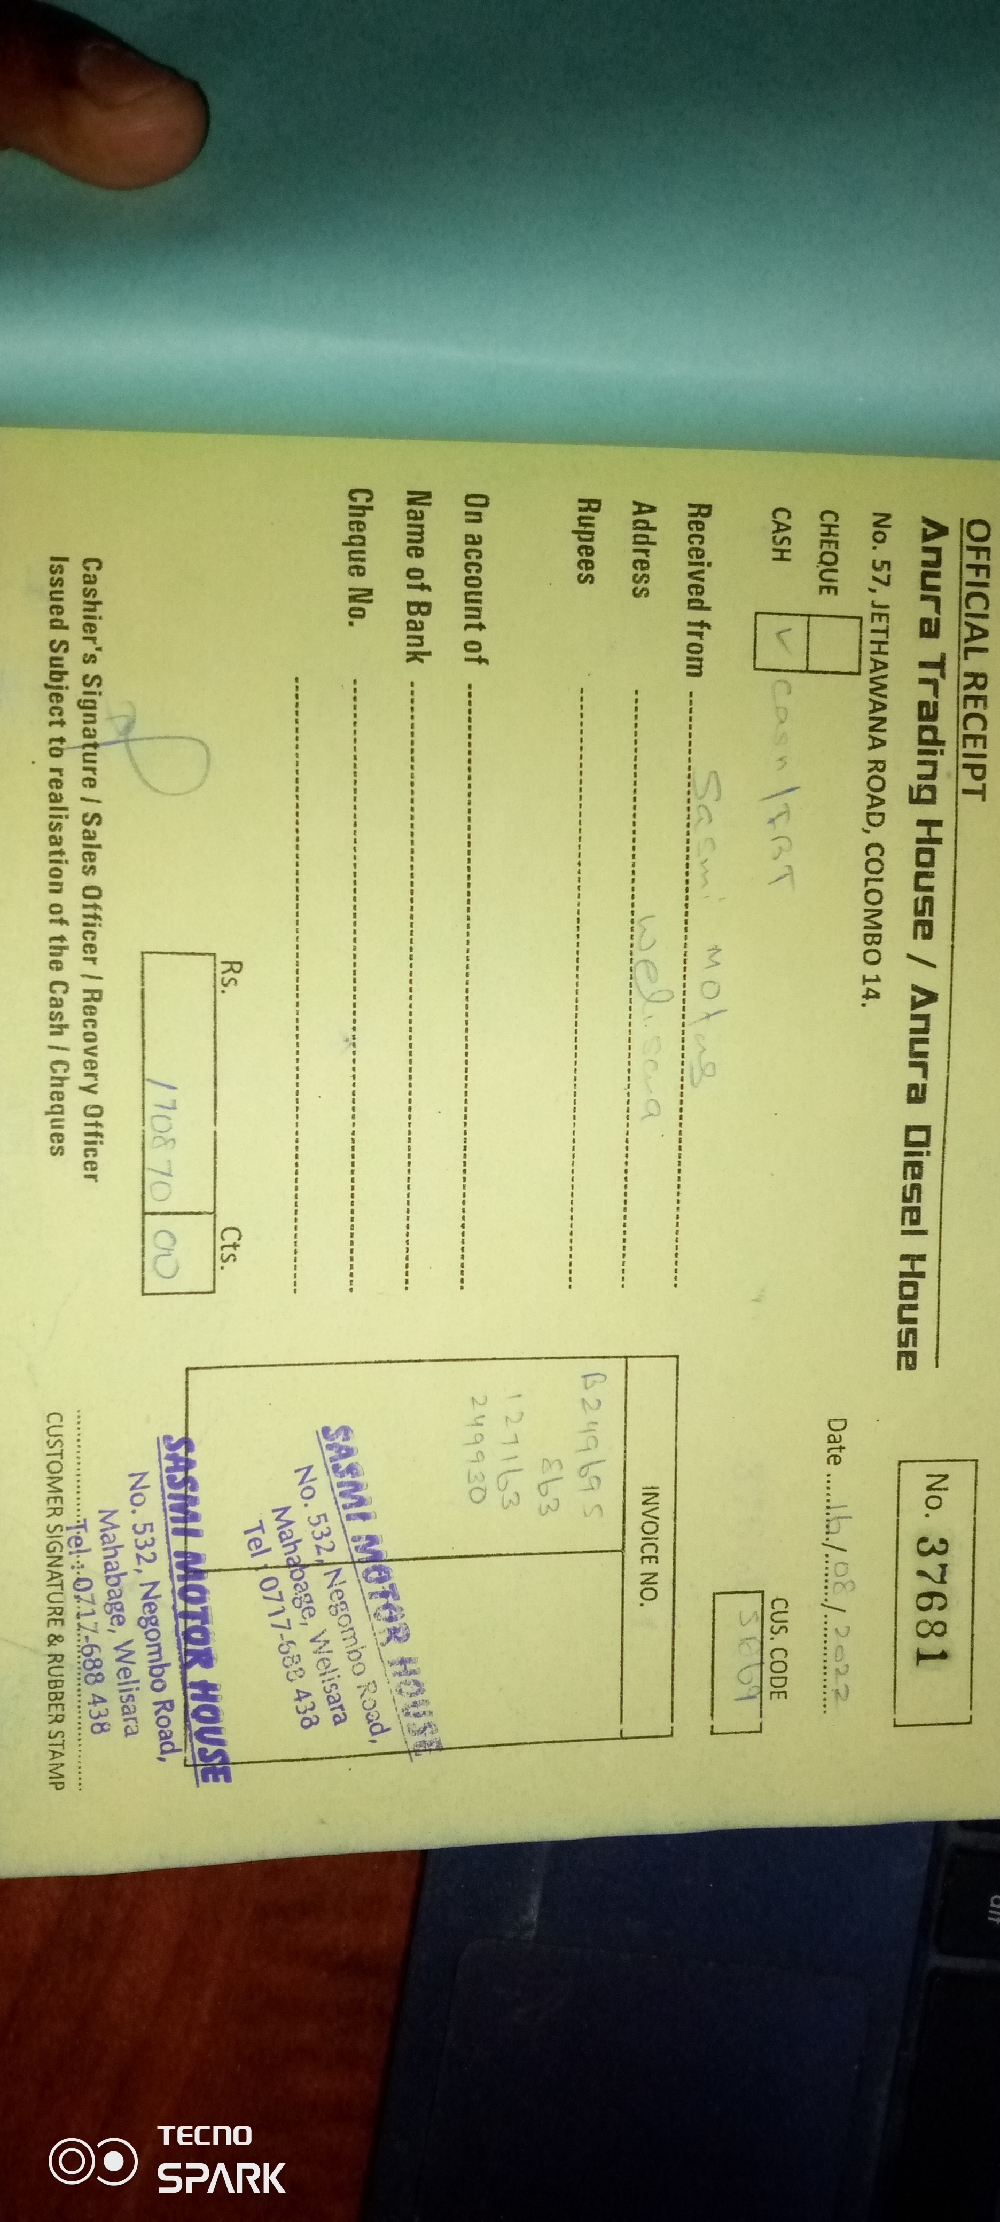 OFFICIAL RECEIPT
Anura Trading House / Anura Diesel House
No. 57, JETHAWANA ROAD, COLOMBO 14.
No. 37681
Date 16/08/2022
CHEQUE
CASH ✓ Cash / TBT
CUS. CODE
Received from Sasmi Motors
Address Welisara
Rupees
On account of
Name of Bank
Cheque No.
INVOICE NO.
B249695
863
127163
249930
SASMI MOTOR HOUSE
No. 532, Negombo Road,
Mahabage, Welisara
Tel : 0717-688 438
Rs. Cts.
170870 00
SASMI MOTOR HOUSE
No. 532, Negombo Road,
Mahabage, Welisara
Tel : 0717-688 438
Cashier's Signature / Sales Officer / Recovery Officer
Issued Subject to realisation of the Cash / Cheques
CUSTOMER SIGNATURE & RUBBER STAMP
TECNO
SPARK